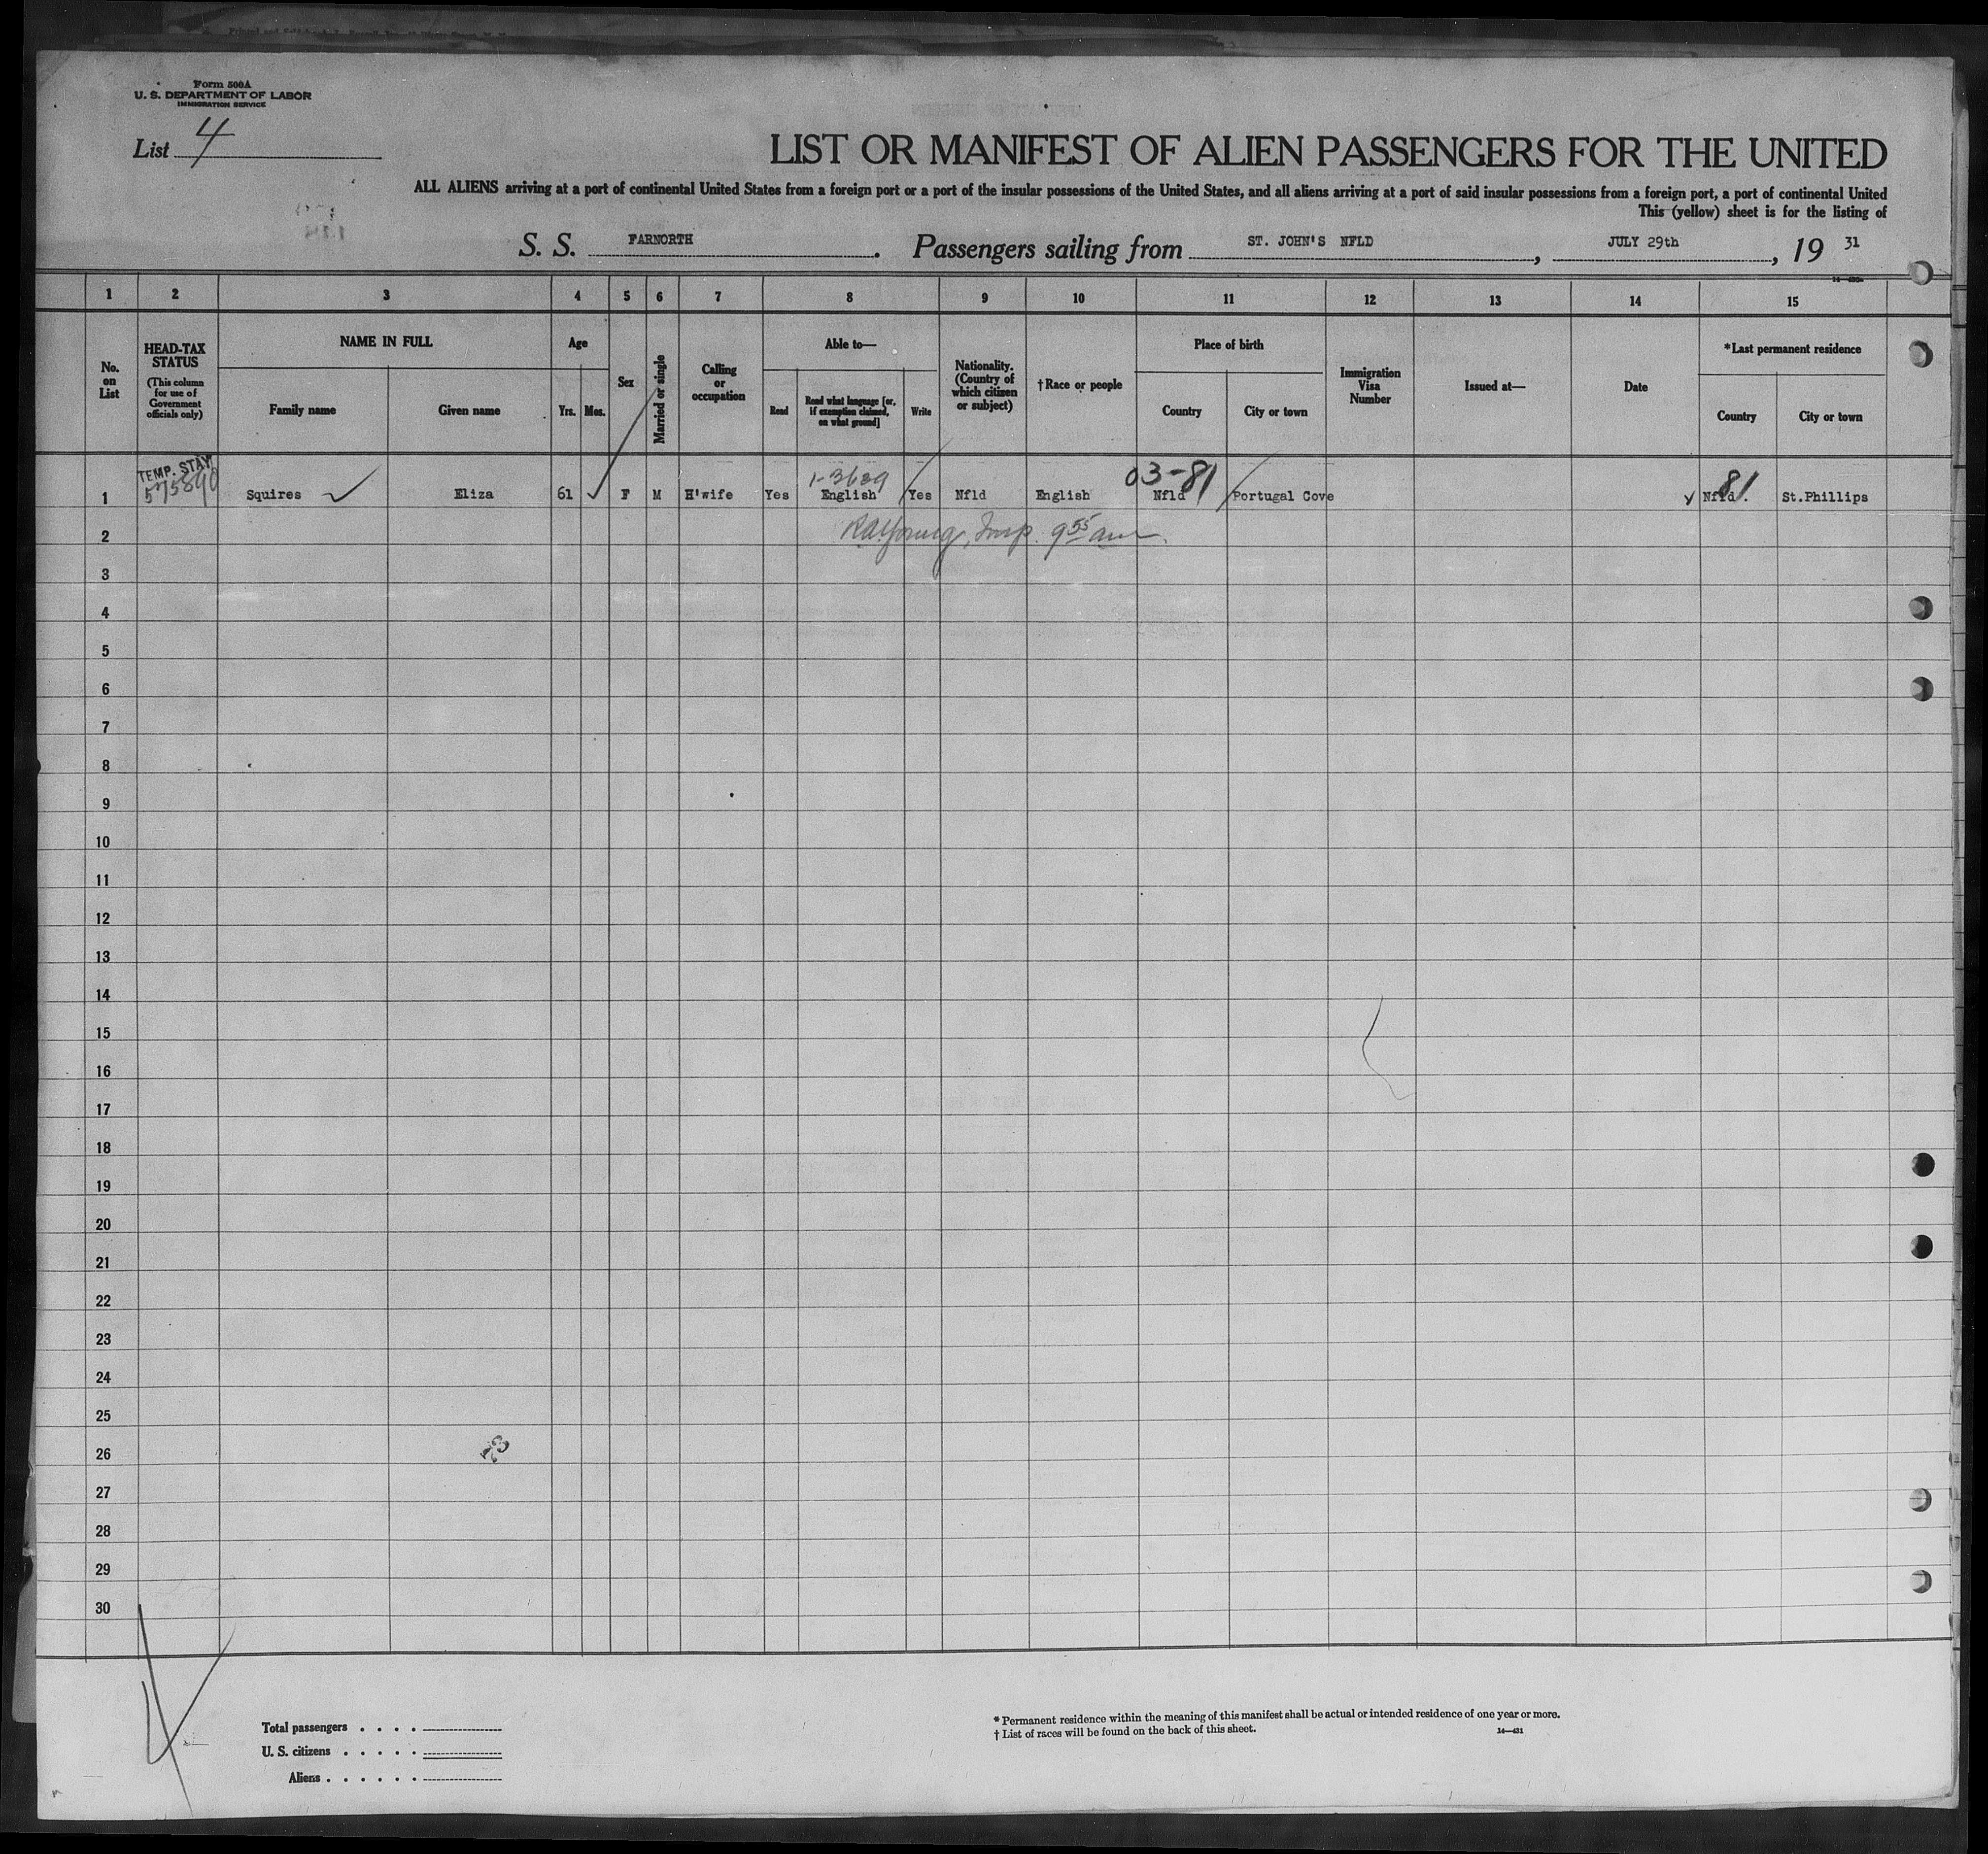 Form 500A
U. S. DEPARTMENT OF LABOR
IMMIGRATION SERVICE
List 4
LIST OR MANIFEST OF ALIEN PASSENGERS FOR THE UNITED
ALL ALIENS arriving at a port of continental United States from a foreign port or a port of the insular possessions of the United States, and all aliens arriving at a port of said insular possessions from a foreign port, a port of continental United
This (yellow) sheet is for the listing of
S. S. FARNORTH. Passengers sailing from ST. JOHN'S NFLD, JULY 29th, 19 31
1 2 3 4 5 6 7 8 9 10 11 12 13 14 15
No. on List
HEAD-TAX STATUS
(This column for use of Government officials only)
NAME IN FULL
Family name
Given name
Age
Yrs. Mos.
Sex
Married or single
Calling or occupation
Able to—
Read
Read what language [or, if exemption claimed, on what ground]
Write
Nationality. (Country of which citizen or subject)
†Race or people
Place of birth
Country
City or town
Immigration Visa Number
Issued at—
Date
*Last permanent residence
Country
City or town
TEMP. STAY
575890
1-3629
03-81
81
1 Squires Eliza 61 F M H'wife Yes English Yes Nfld English Nfld Portugal Cove Nfld. St.Phillips
2 Young, Insp. 9 55 am
3
4
5
6
7
8
9
10
11
12
13
14
15
16
17
18
19
20
21
22
23
24
25
26
27
28
29
30
Total passengers . . . .
U. S. citizens . . . . .
Aliens . . . . . .
* Permanent residence within the meaning of this manifest shall be actual or intended residence of one year or more.
† List of races will be found on the back of this sheet.
14—431